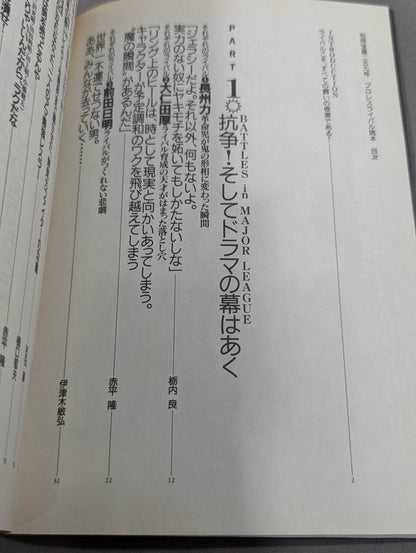 別冊宝島二五九号 プロレスライバル読本 目次
INTRODUCTION
ライバルこそ、すべての闘いの根源である!
2
PART 1 抗争!そしてドラマの幕はあく
BATTLES in MAJOR LEAGUE
それぞれのライバル❶長州力 革命児が鬼の形相に変わった瞬間
「ジェラシーだよ。それ以外、何もないよ。
実力のない奴にヤキモチを妬いてもしかたないしな」
栃内 良
12
それぞれのライバル❷大仁田厚 ライバル育成の天才がはまった落とし穴
「リング上のヒールは、時として現実と向かいあってしまう。
キャラクターが予定調和のワクを飛び越えてしまう
“魔の瞬間”があるんだ」
赤平 隆
22
それぞれのライバル❸前田日明 ライバルがつくれない悲劇
世界一不運でせつない男。
ああ、みんなが去っていく……
伊津木敏弘
32